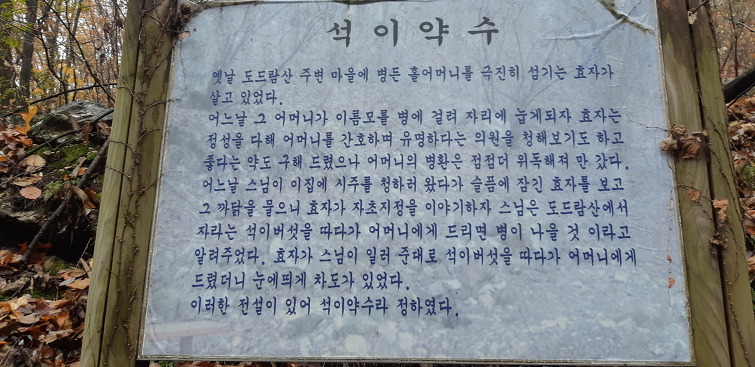 석이약수
옛날 도드람산 주변 마을에 병든 홀어머니를 극진히 섬기는 효자가
살고 있었다.
어느날 그 어머니가 이름모를 병에 걸려 자리에 눕게되자 효자는
정성을 다해 어머니를 간호하며 유명하다는 의원을 청해보기도 하고
좋다는 약도 구해 드렸으나 어머니의 병환은 점점더 위독해져 만 갔다.
어느날 스님이 이집에 시주를 청하러 왔다가 슬픔에 잠긴 효자를 보고
그 까닭을 물으니 효자가 자초지정을 이야기하자 스님은 도드람산에서
자라는 석이버섯을 따다가 어머니에게 드리면 병이 나을 것 이라고
알려주었다. 효자가 스님이 일러 준대로 석이버섯을 따다가 어머니에게
드렸더니 눈에띄게 차도가 있었다.
이러한 전설이 있어 석이약수라 정하였다.